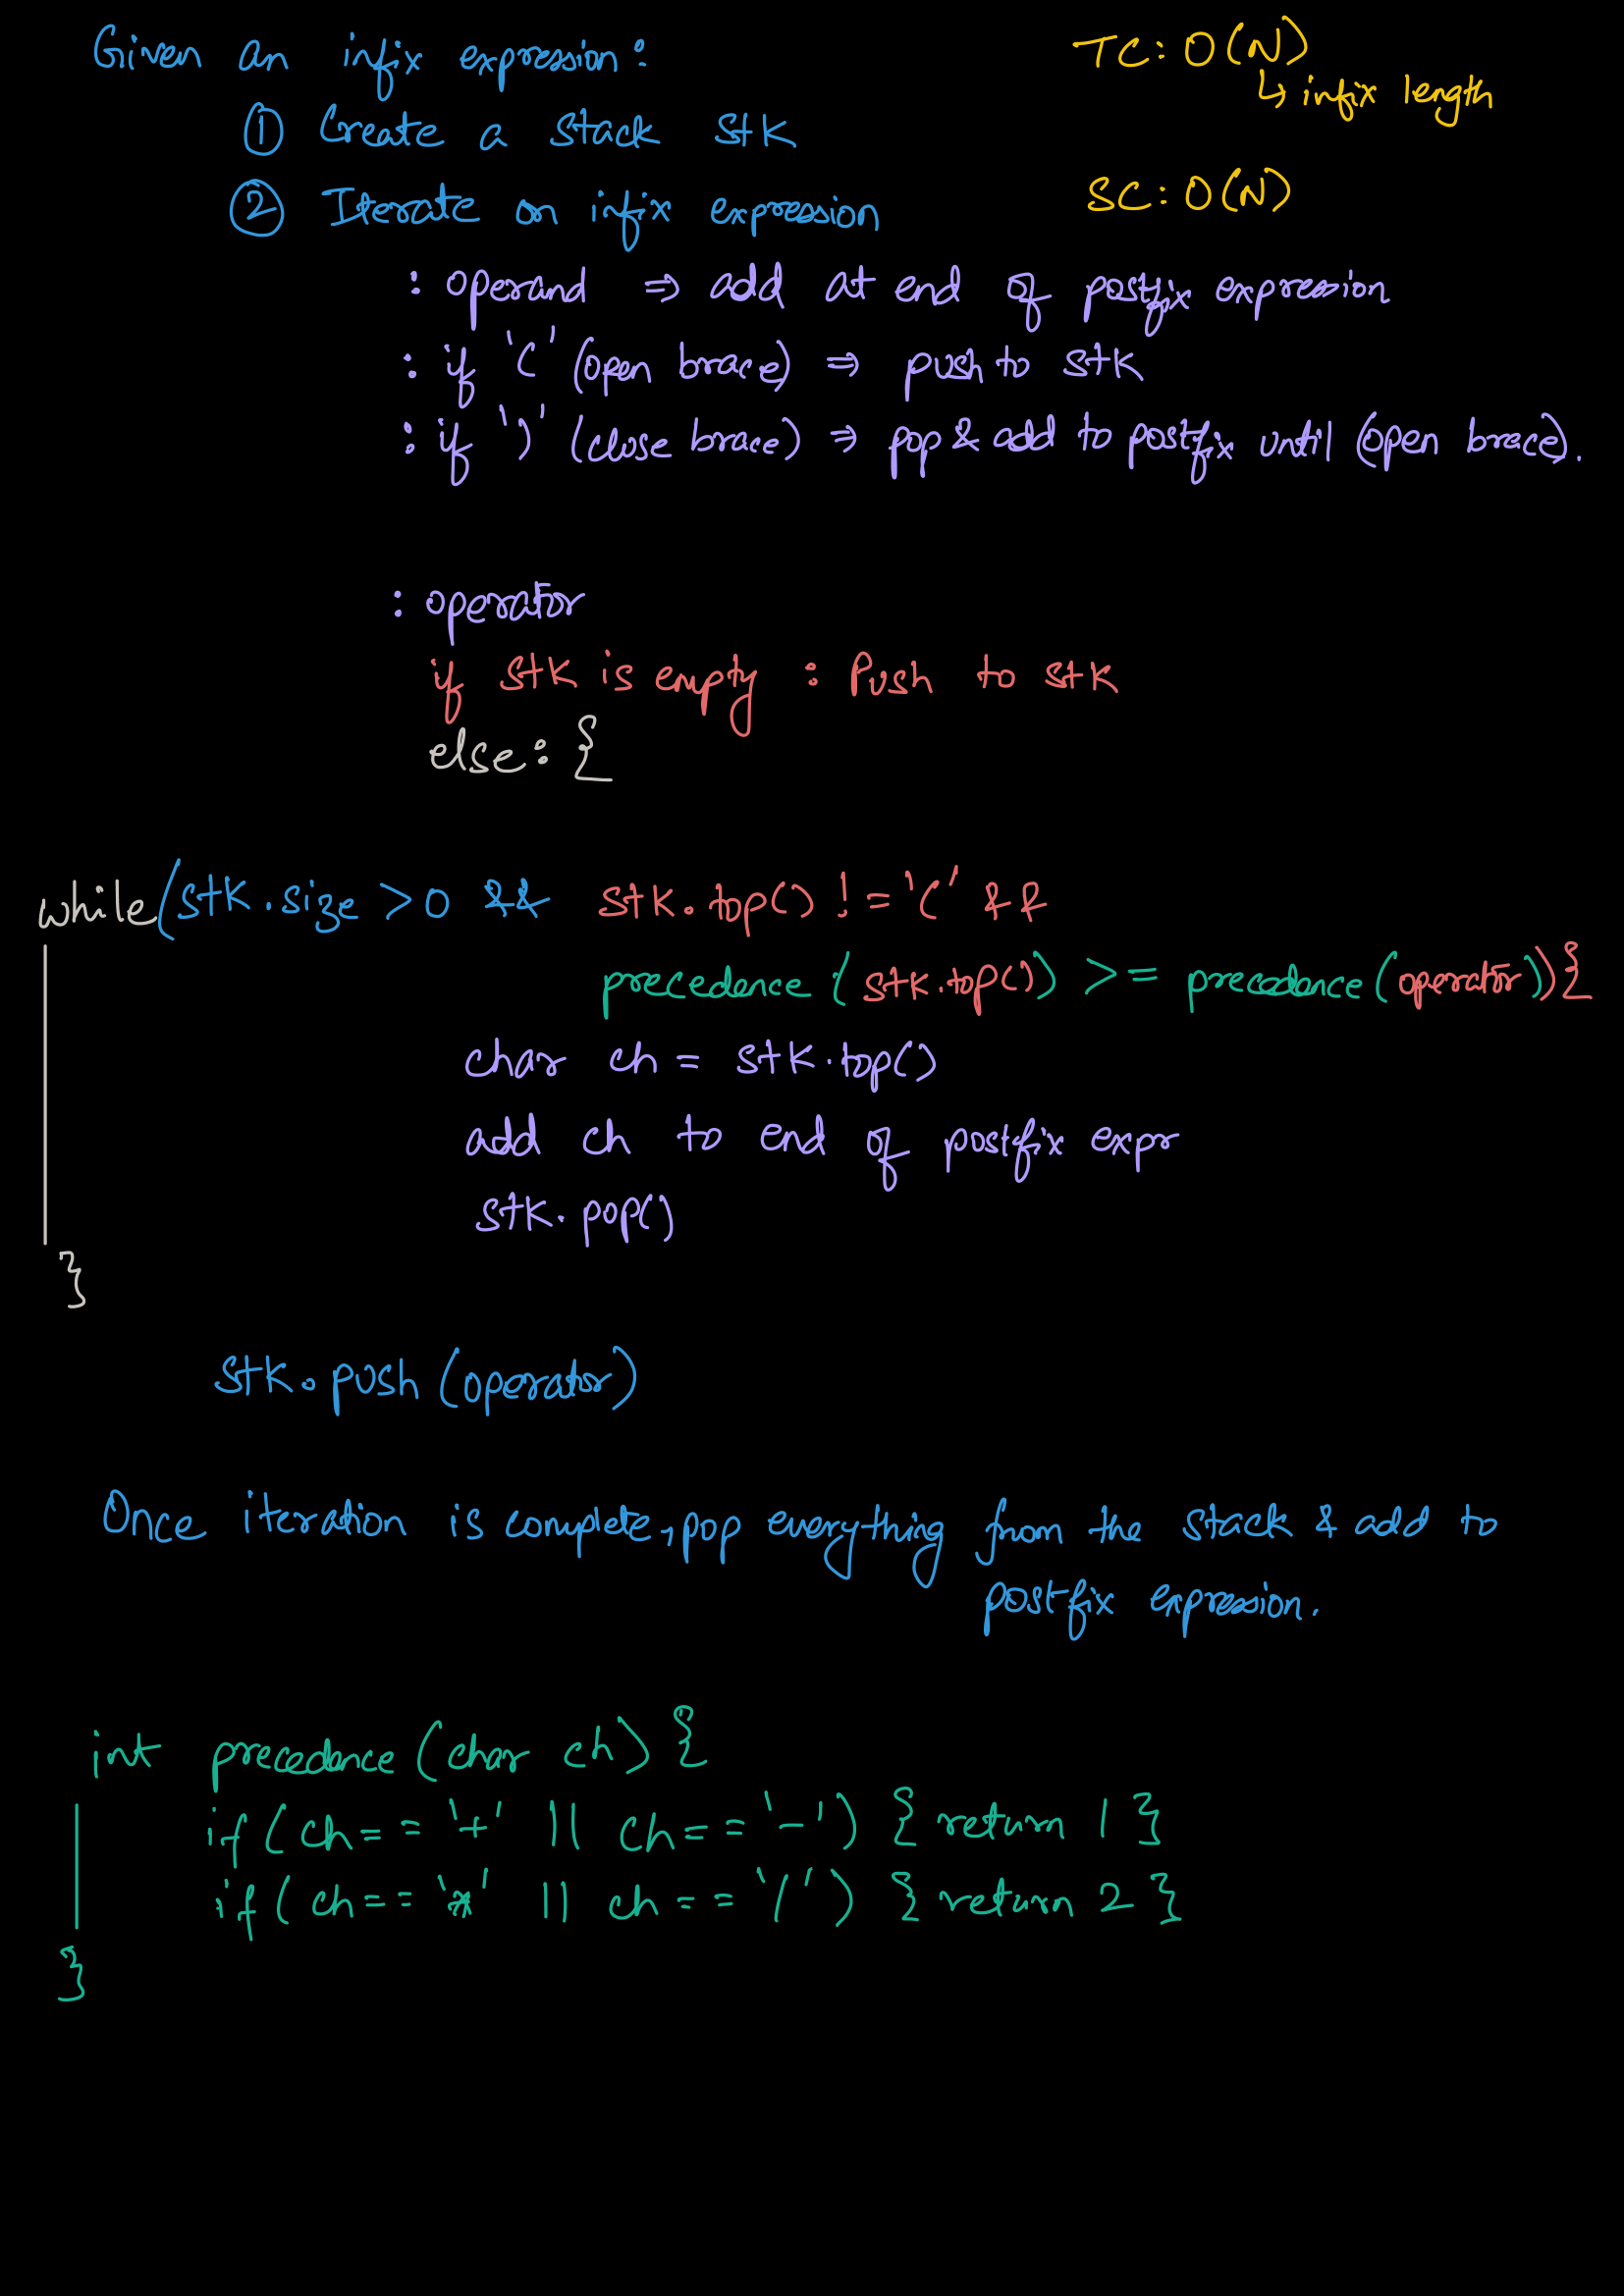 Given an infix expression:
TC: O(N)
↳ infix length
① Create a stack stk
SC: O(N)
② Iterate on infix expression
: operand ⇒ add at end of postfix expression
: if '(' (open brace) ⇒ push to stk
: if ')' (close brace) ⇒ pop & add to postfix until (open brace).
: operator
if stk is empty : Push to stk
else: {
while(stk.size >0 && stk.top() != '(' &&
precedence (stk.top()) >= precedence(operator)){
char ch = stk.top()
add ch to end of postfix expr
stk.pop()
}
stk.push(operator)
Once iteration is complete, pop everything from the stack & add to
postfix expression.
int precedence (char ch) {
if (ch== '+' || ch== '-') { return 1 }
if( ch== '*' || ch == '/') { return 2 }
}